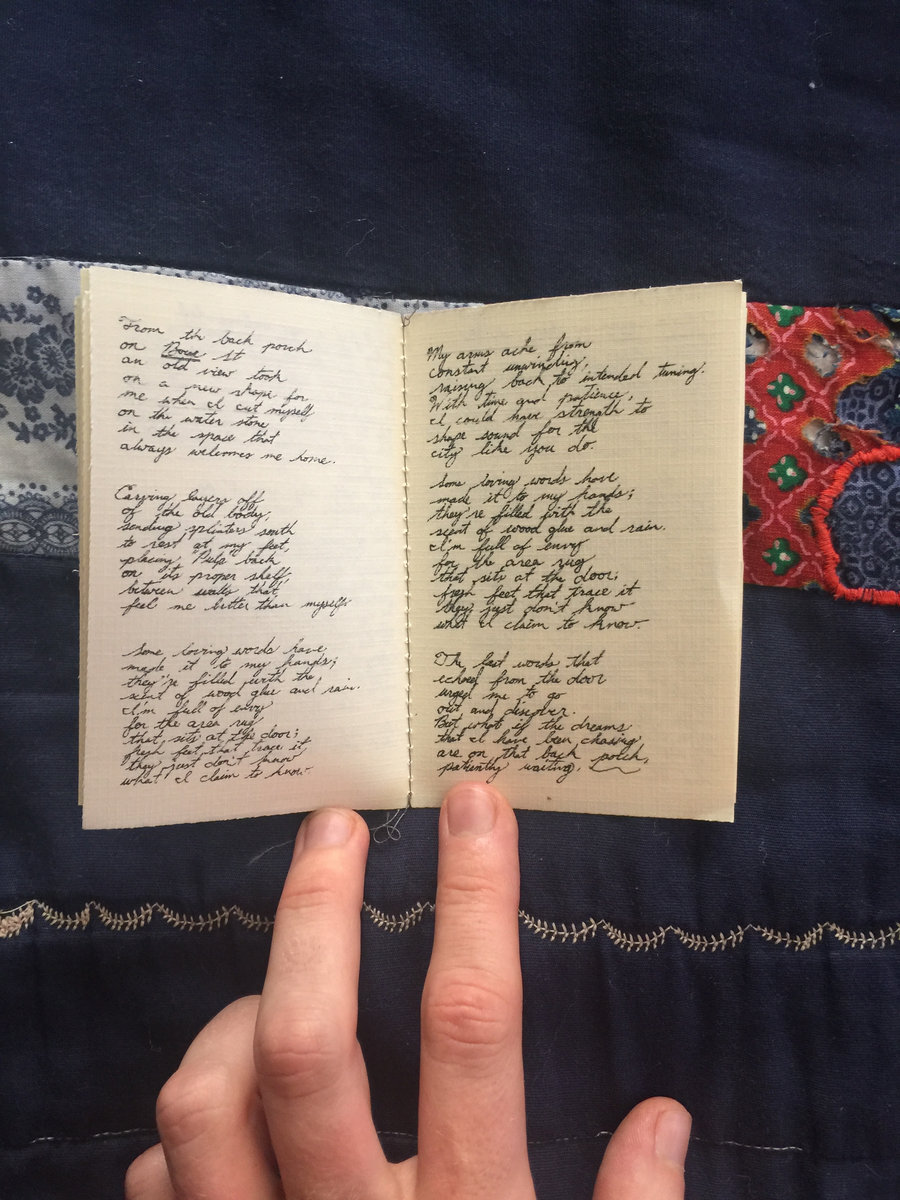 From the back porch
on Bowe St
an old view took
on a new shape for
me when I cut myself
on the water stone
in the space that
always welcomes me home.
Carving layers off
of the old body,
sending splinters south
to rest at my feet,
placing Pulp back
on its proper shelf,
between walls that
feel me better than myself.
Some loving words have
made it to my hands;
they're filled with the
scent of wood glue and rain.
I'm full of envy
for the area rug
that sits at the door;
fresh feet that trace it
they just don't know
what I claim to know.
My arms ache from
constant unwinding,
raising back to intended tuning.
With time and patience,
I could have strength to
shape sound for the
city like you do.
Some loving words have
made it to my hands;
they're filled with the
scent of wood glue and rain.
I'm full of envy
for the area rug
that sits at the door;
fresh feet that trace it
they just don't know
what I claim to know.
The last words that
echoed from the door
urged me to go
out and discover.
But what if the dreams
that I have been chasing
are on that back porch,
patiently waiting.